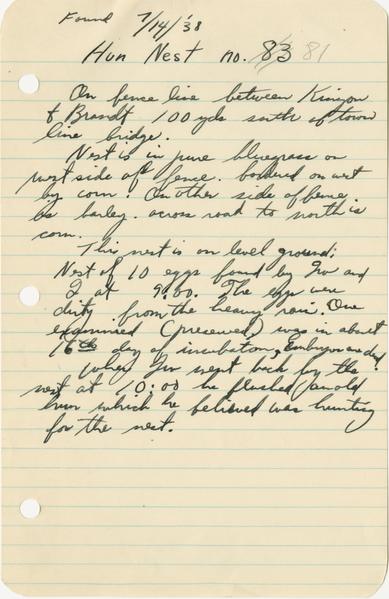 Found 7/14/'38
Hun Nest no. 83 81
On fence line between Kinyon
& Brandt 100 yds south of town
line bridge.
Nest is in pure bluegrass on
west side of fence. bordered on west
by corn. On other side of fence
is barley. across road to north is
corn.
This nest is on level ground.
Nest of 10 eggs found by Irv and
I at 9:00. The eggs were
dirty from the heavy rain. One
examined (preserved) was in about
16th day of incubation, Embryo dead
When Irv went back by the
nest at 10:00 he flushed an old
hun which he believed was hunting
for the nest.